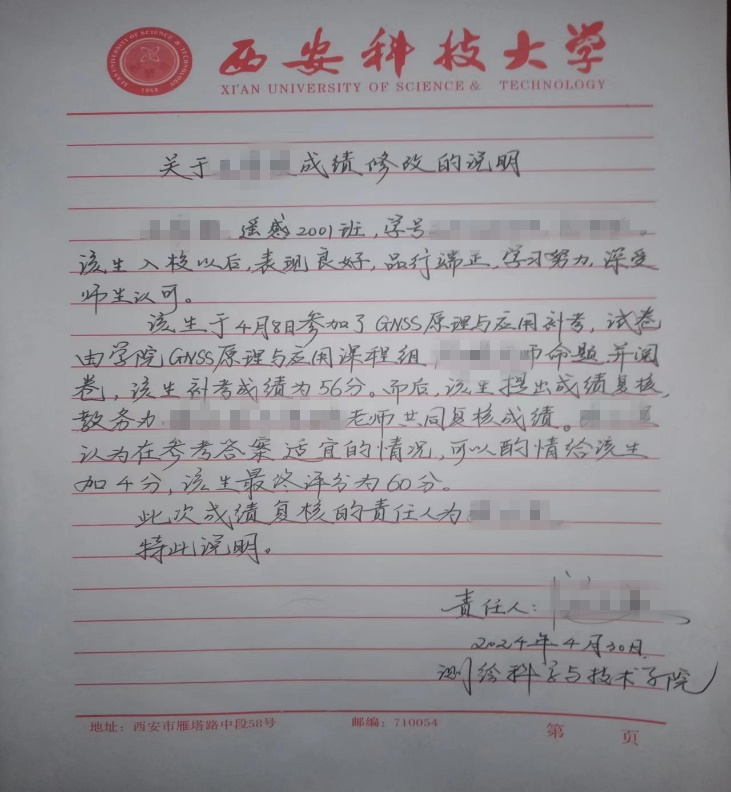 西安科技大学
XI'AN UNIVERSITY OF SCIENCE & TECHNOLOGY
XI'AN UNIVERSITY OF SCIENCE & TECHNOLOGY
1958
关于 成绩修改的说明
遥感2001班,学号 。
该生入校以后,表现良好,品行端正,学习努力,深受
师生认可。
该生于4月8日参加了GNSS原理与应用补考,试卷
由学院GNSS原理与应用课程组 师命题并阅
卷,该生补考成绩为56分。而后,该生提出成绩复核,
教务办 老师共同复核成绩。
认为在参考答案适宜的情况,可以酌情给该生
加4分,该生最终评分为60分。
此次成绩复核的责任人为
特此说明。
责任人:
2024年4月30日
测绘科学与技术学院
地址:西安市雁塔路中段58号 邮编:710054 第 页